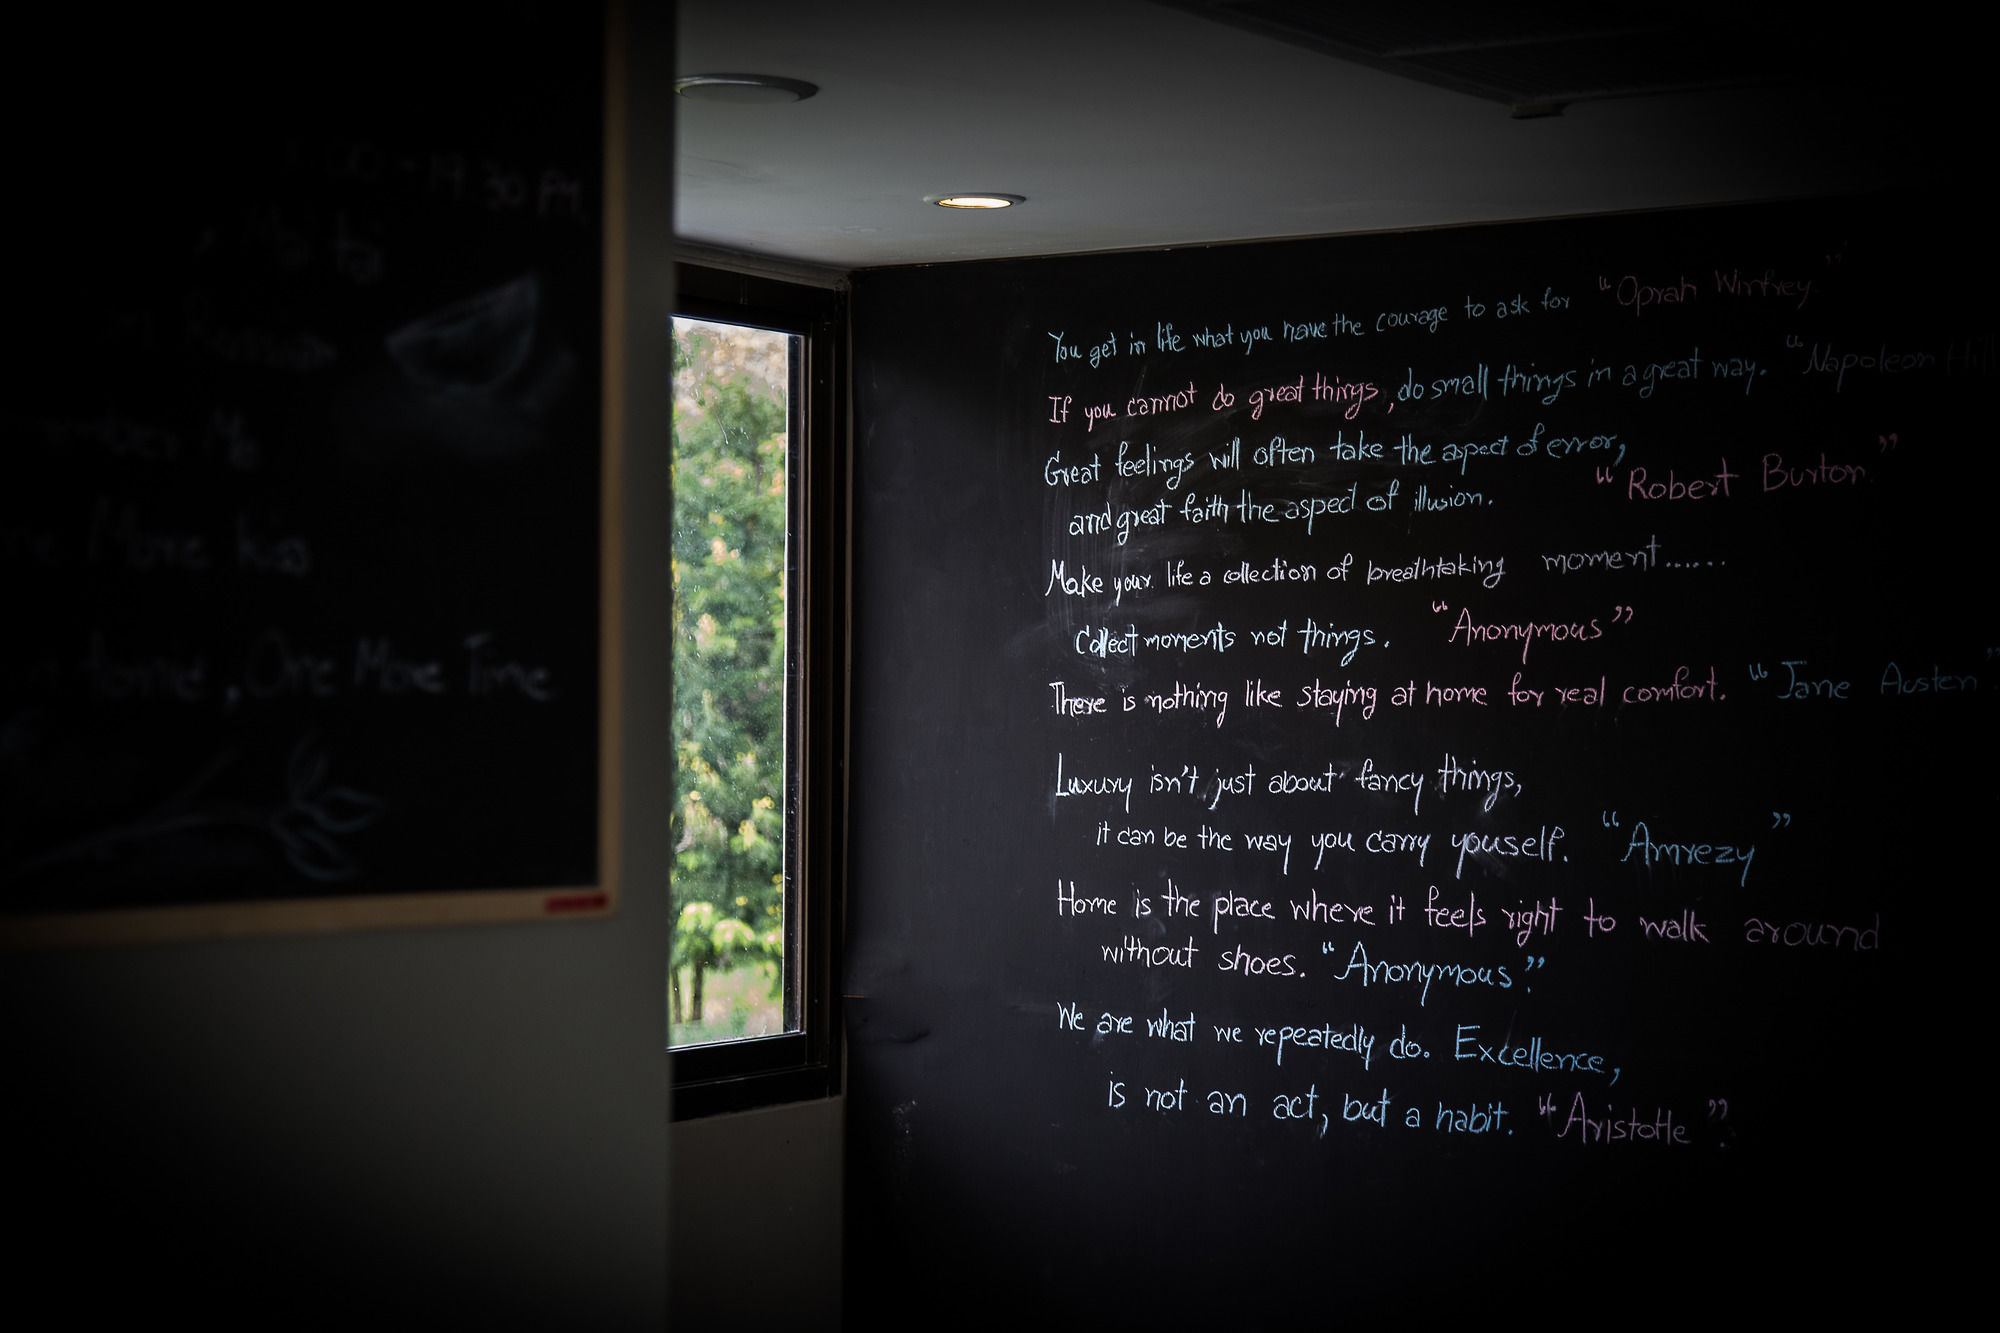 - 19.30 PM
More Kiss
, One More Time
You get in life what you have the courage to ask for “Oprah Winfrey”
If you cannot do great things, do small things in a great way. “Napoleon Hill
Great feelings will often take the aspect of error,
and great faith the aspect of illusion. “Robert Burton.”
Make your life a collection of breathtaking moment......
Collect moments not things. “Anonymous”
There is nothing like staying at home for real comfort. “Jane Austen”
Luxury isn't just about fancy things,
it can be the way you carry youself. “Amrezy”
Home is the place where it feels right to walk around
without shoes. “Anonymous”.
We are what we repeatedly do. Excellence,
is not an act, but a habit. “Aristotle”.